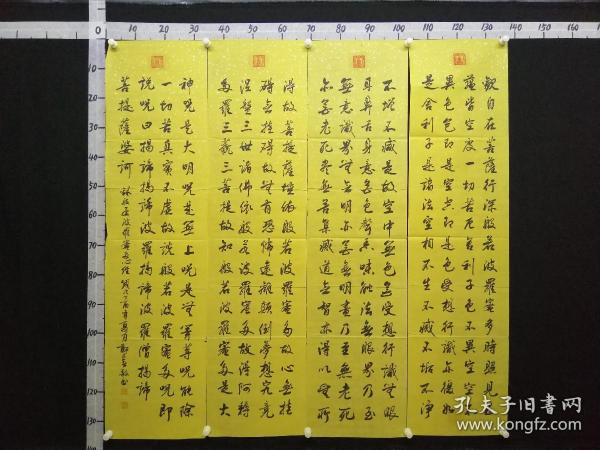 0 10 20 30 40 50 60 70 80 90 100 110 120 130 140 150
觀自在菩薩行深般若波羅蜜多時照見五
蘊皆空度一切苦厄舍利子色不異空空不
異色色即是空空即是色受想行識亦復如
是舍利子是諸法空相不生不滅不垢不淨
不增不減是故空中無色無受想行識無眼
耳鼻舌身意無色聲香味觸法無眼界乃至
無意識界無無明亦無無明盡乃至無老死
亦無老死盡無苦集滅道無智亦無得以無所
得故菩提薩埵依般若波羅蜜多故心無掛
礙無掛礙故無有恐怖遠離顛倒夢想究竟
涅槃三世諸佛依般若波羅蜜多故得阿耨
多羅三藐三菩提故知般若波羅蜜多是大
神咒是大明咒是無上咒是無等等咒能除
一切苦真實不虛故說般若波羅蜜多咒即
說咒曰揭諦揭諦波羅揭諦波羅僧揭諦
菩提薩婆訶
10
20
30
40
50
60
70
80
90
100
110
120
130
孔夫子旧书网
www.kongfz.com